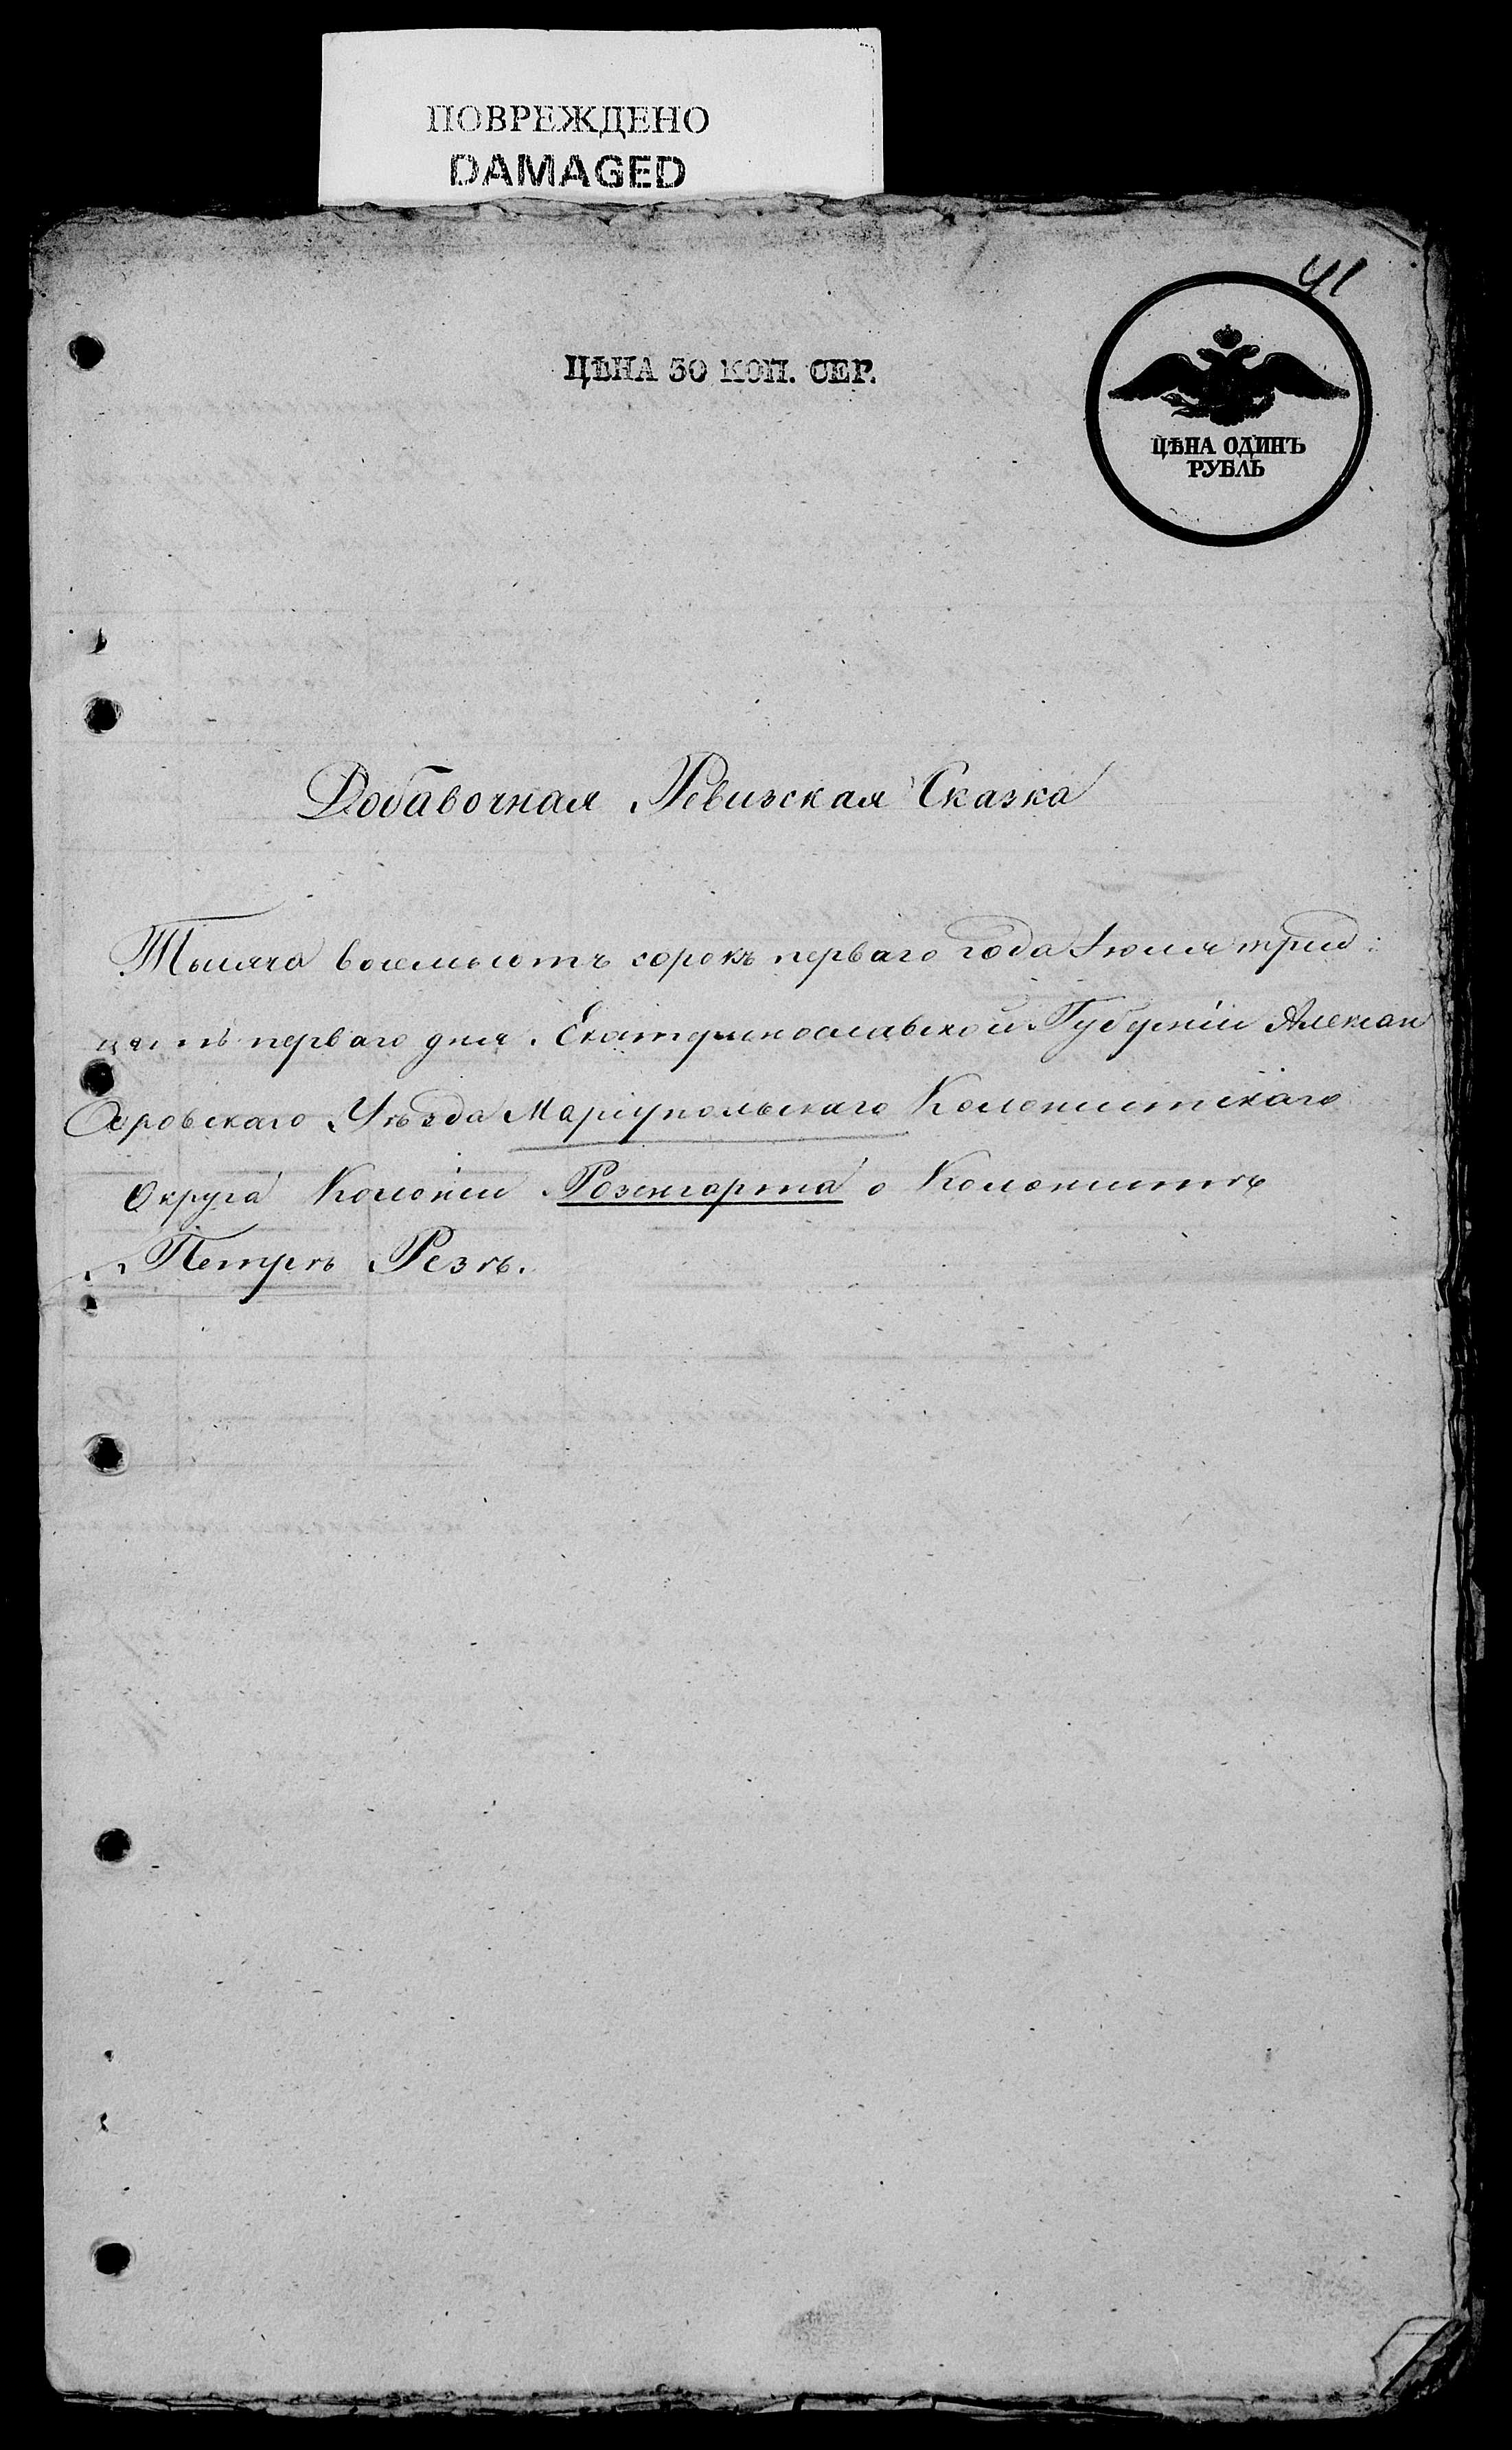 ПОВРЕЖДЕНО
DAMAGED
41
ЦѢНА 50 КОП. СЕР.
ЦѢНА ОДИНЪ
РУБЛЬ
Добавочная Ревизская Сказка
Тысяча восемьсотъ сорокъ перваго года Іюля трид:
цать перваго дня. Екатеринославской Губерніи Алексан
дровскаго Уѣзда Маріупольскаго Колонистскаго
Округа Колоніи Розенгарта о Колонистѣ
Петрѣ Резѣ.